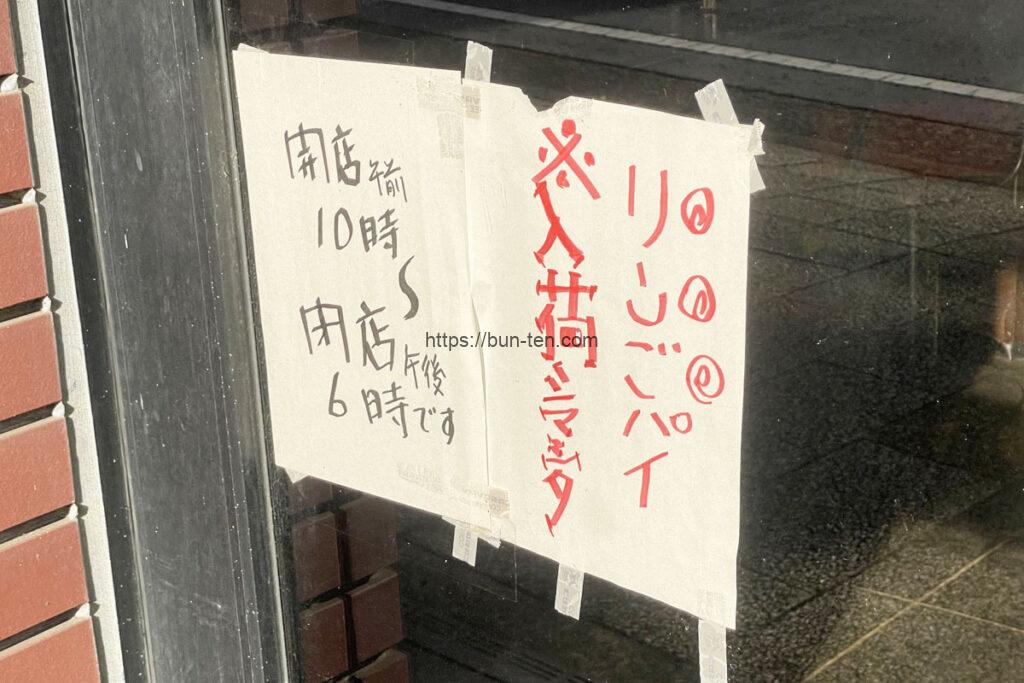 リンゴパイ
※入荷シマシタ
開店午前
10時
〜
閉店午後
6時です
https://bun-ten.com